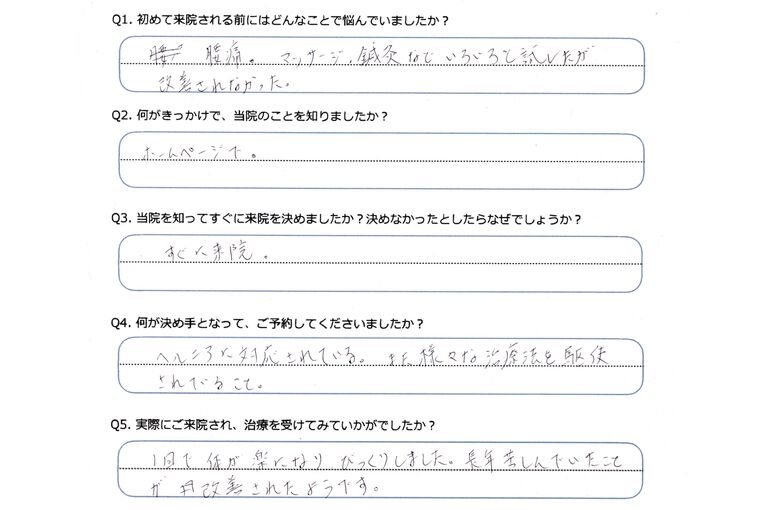 Q1. 初めて来院される前にはどんなことで悩んでいましたか？
腰痛。マッサージ、鍼灸などいろいろと試したが
改善されなかった。
Q2. 何がきっかけで、当院のことを知りましたか？
ホームページで。
Q3. 当院を知ってすぐに来院を決めましたか？決めなかったとしたらなぜでしょうか？
すぐに来院。
Q4. 何が決め手となって、ご予約してくださいましたか？
ヘルニアに対応されている。また様々な治療法を駆使
されてること。
Q5. 実際にご来院され、治療を受けてみていかがでしたか？
1回で体が楽になりびっくりしました。長年苦しんでいたこと
が改善されたようです。